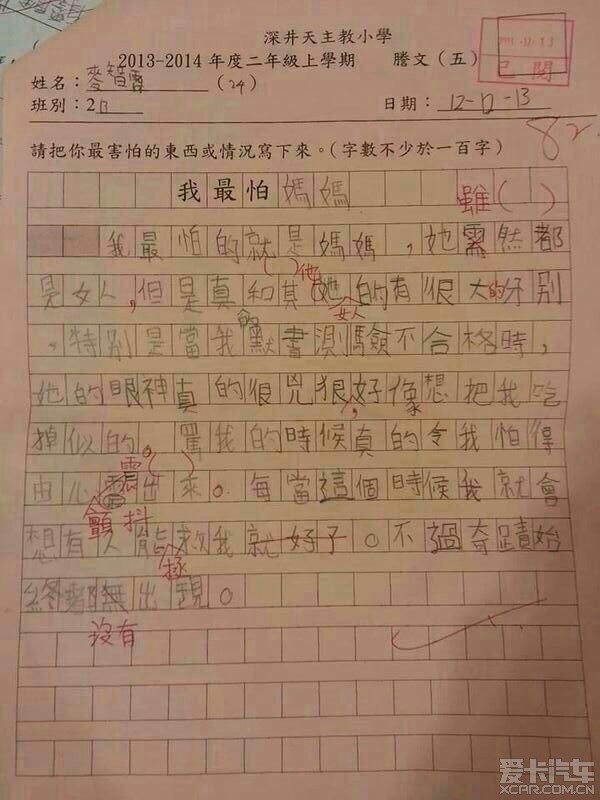 深井天主教小學
2013-2014年度二年級上學期 謄文(五)
已閱
姓名:麥智 (24)
班別:2B
日期:12-12-13
82
請把你最害怕的東西或情況寫下來。(字數不少於一百字)
我最怕媽媽
雖( )
我最怕的就是媽媽,她雖然都
他
是女人,但是真和其她的有很大的分別
女人
,特別是當我的默書測驗不合格時,
她的眼神真的很兇狠,好像想把我吃
掉似的。罵我的時候真的令我怕得
震( )
由心震出來。每當這個時候我就會
顫抖
想有人能救我就好了。不過奇蹟始
拯
終都無出現。
沒有
爱卡汽车
XCAR.COM.CN